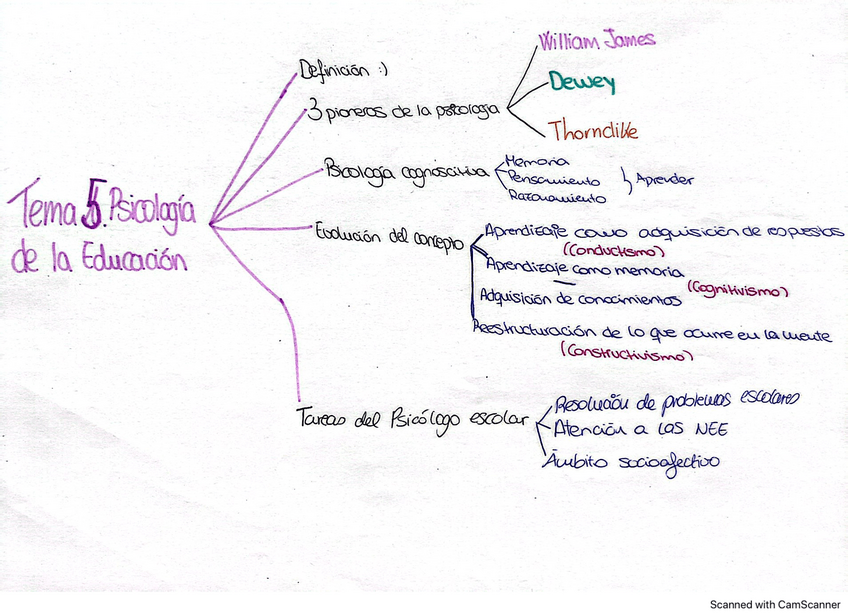 Tema 5. Psicología
de la Educación
Definición :)
3 pioneros de la psicología
William James
Dewey
Thorndike
Psicología cognoscitiva
Memoria
Pensamiento
Razonamiento
Aprender
Evolución del concepto
Aprendizaje como adquisición de respuestas
(Conductismo)
Aprendizaje como memoria
(Cognitivismo)
Adquisición de conocimientos
Reestructuración de lo que ocurre en la mente
(Constructivismo)
Tareas del Psicólogo escolar
Resolución de problemas escolares
Atención a las NEE
Ámbito socioafectivo
Scanned with CamScanner